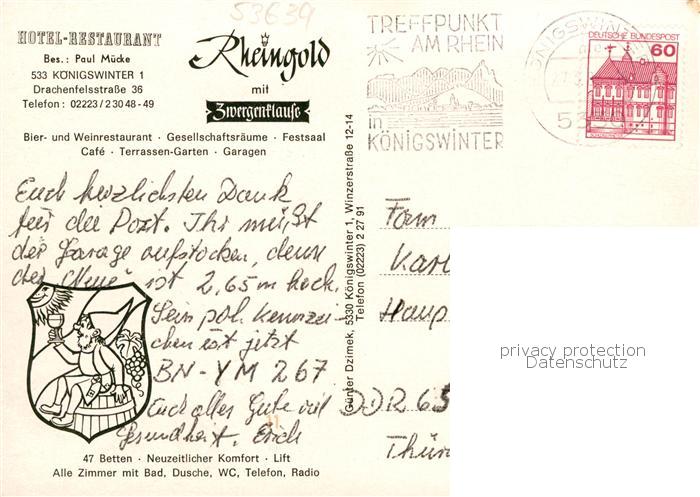 53639
HOTEL-RESTAURANT
Bes.: Paul Mücke
533 KÖNIGSWINTER 1
Drachenfelsstraße 36
Telefon: 02223/23048-49
Rheingold
mit
Zwergenklause
Bier- und Weinrestaurant · Gesellschaftsräume · Festsaal
Café · Terrassen-Garten · Garagen
Euch herzlichsten Dank
für die Post. Ihr müßt
die Garage aufstocken, denn
der "Neue" ist 2,65 m hoch.
Sein pol. Kennzei-
chen ist jetzt
BN-YM 267
Euch alles Gute und
Gesundheit. Erich
11
47 Betten · Neuzeitlicher Komfort · Lift
Alle Zimmer mit Bad, Dusche, WC, Telefon, Radio
Günter Dzimek, 5330 Königswinter 1, Winzerstraße 12-14
Telefon (02223) 2 27 91
TREFFPUNKT
AM RHEIN
in
KÖNIGSWINTER
KÖNIGSWINTER
533
DEUTSCHE BUNDESPOST
60
Fam
Karl
Haup
DDR 65
Thür
privacy protection
Datenschutz